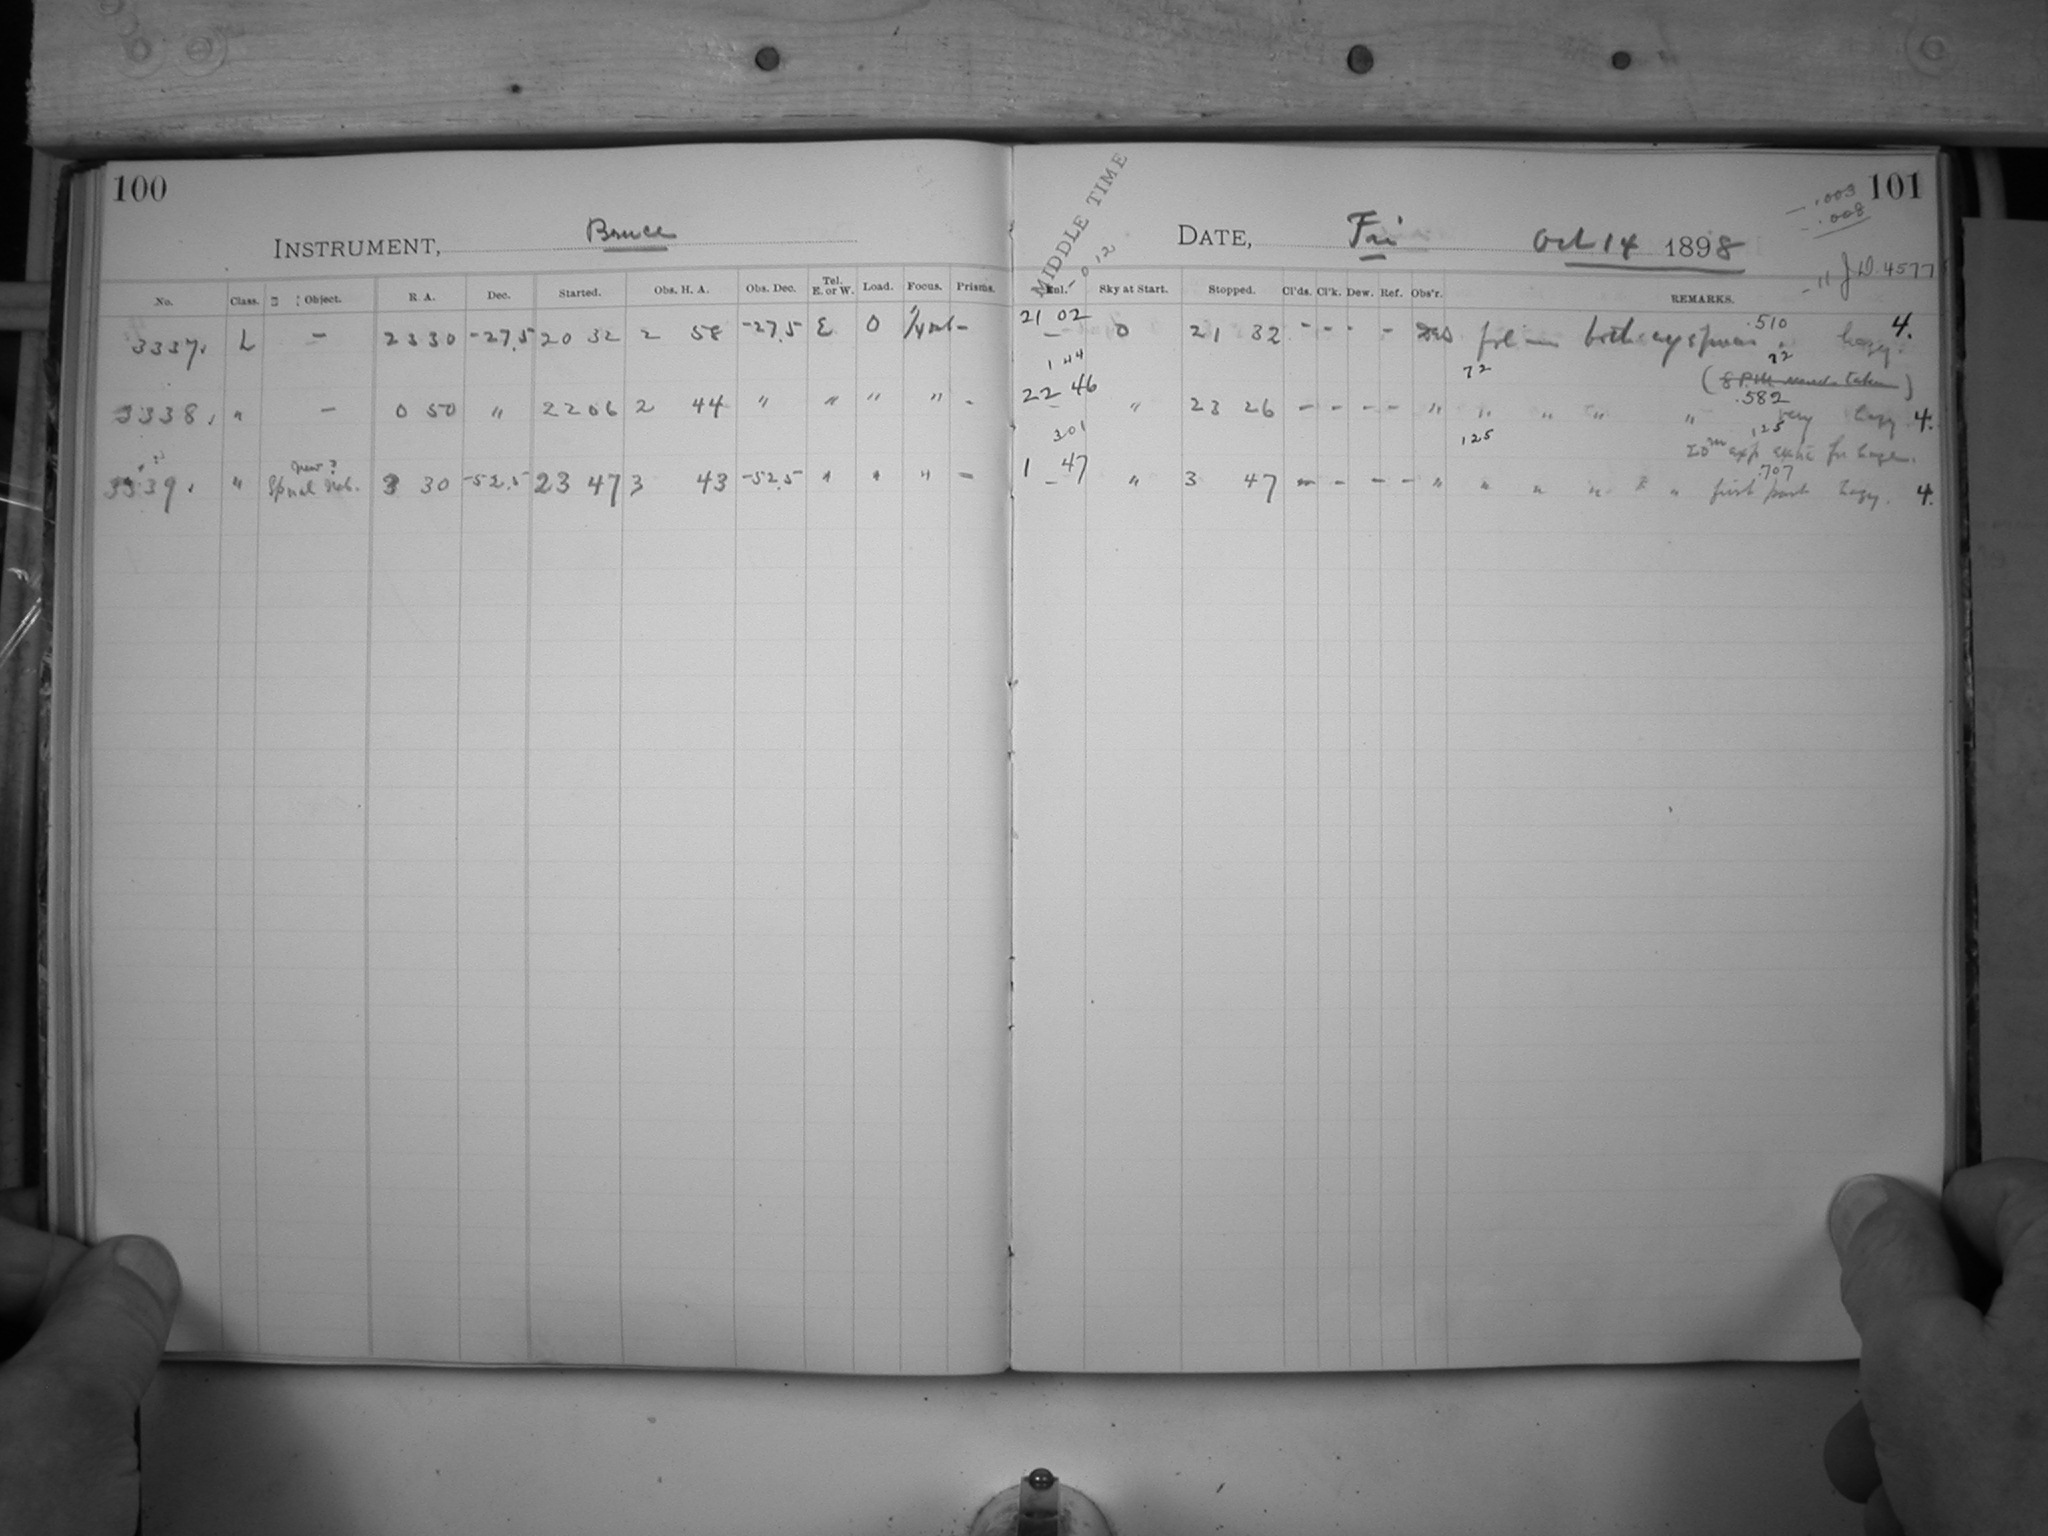 100
INSTRUMENT, Bruce
No. Class. Object. R. A. Dec. Started. Obs. H. A. Obs. Dec. Tel. E. or W. Load. Focus. Prisms.
3337. L — 23 30 -27.5 20 32 2 58 -27.5 E 0 —
3338. " — 0 50 " 22 06 2 44 " " " " -
new?
3339. " Spiral Neb. 3 30 -52.5 23 47 3 43 -52.5 " " " —
MIDDLE TIME
- 0 12
DATE, Fri Oct 14 1898
- .003
- .008
101
- 11 J D. 4577
Sky at Start. Stopped. Cl'ds. Cl'k. Dew. Ref. Obs'r. REMARKS.
21 02
— 0 21 32 - - - - hazy. 4.
.510
1 44
72
72
(8 P.M. taken)
22 46
— " 23 26 — — — — " " " " " very hazy 4.
.582
301
.125
.125
20m exp extra for haze.
1 47
— " 3 47 — - - - " " " " " " first part hazy. 4.
.707